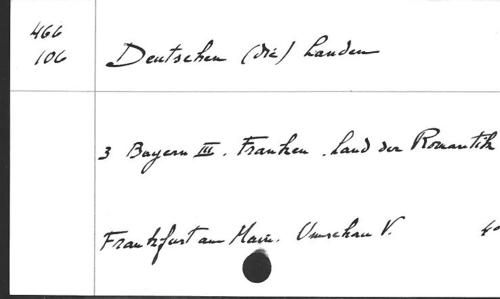 466
106
Deutschen (die) Landen
3 Bayern III. Franken. Land der Romantik
Frankfurt am Main. Umschau V. 4°